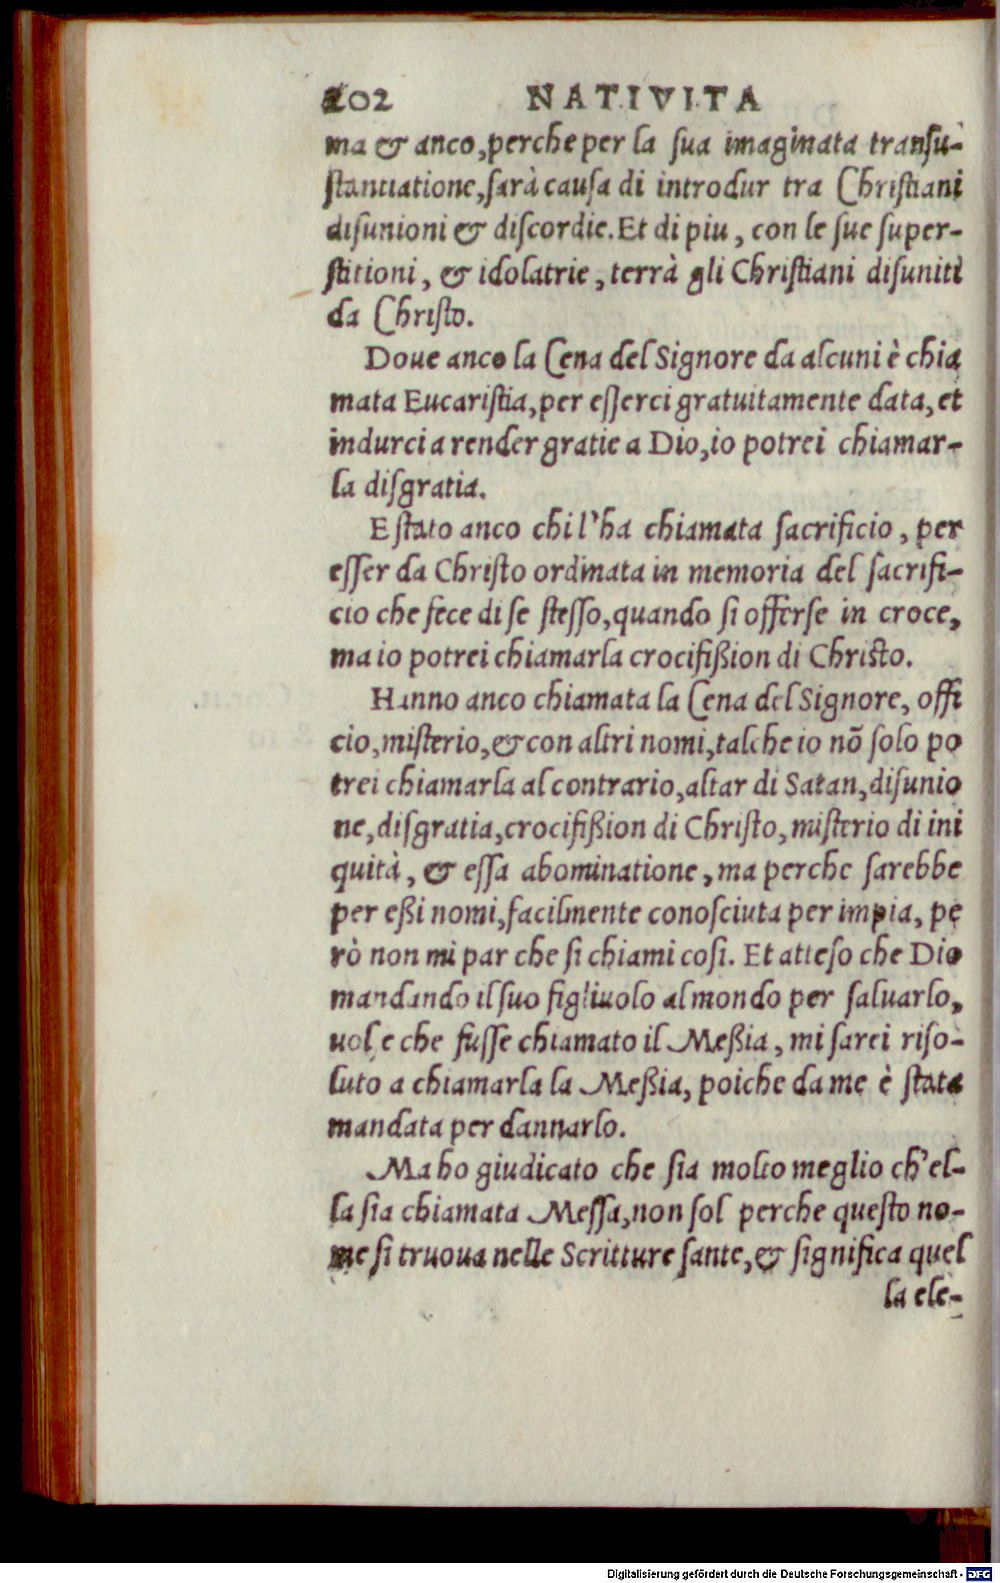 202 NATIVITA
ma & anco, perche per la sua imaginata transu-
stantiatione, sarà causa di introdur tra Christiani
disunioni & discordie. Et di piu, con le sue super-
stitioni, & idolatrie, terrà gli Christiani disuniti
da Christo.
Doue anco la Cena del Signore da alcuni è chia
mata Eucaristia, per esserci gratuitamente data, et
indurci a render gratie a Dio, io potrei chiamar-
la disgratia.
E stato anco chi l'ha chiamata sacrificio, per
esser da Christo ordinata in memoria del sacrifi-
cio che fece di se stesso, quando si offerse in croce,
ma io potrei chiamarla crocifißion di Christo.
Hanno anco chiamata la Cena del Signore, offi
cio, misterio, & con altri nomi, talche io nõ solo po
trei chiamarla al contrario, altar di Satan, disunio
ne, disgratia, crocifißion di Christo, misterio di ini
quità, & essa abominatione, ma perche sarebbe
per eßi nomi, facilmente conosciuta per impia, pe
rò non mi par che si chiami cosi. Et atteso che Dio
mandando il suo figliuolo al mondo per saluarlo,
uolse che fusse chiamato il Meßia, mi sarei riso-
luto a chiamarla la Meßia, poiche da me è stata
mandata per dannarlo.
Ma ho giudicato che sia molto meglio ch'el-
la sia chiamata Messa, non sol perche questo no-
me si truoua nelle Scritture sante, & significa quel
la ele-
Digitalisierung gefördert durch die Deutsche Forschungsgemeinschaft - DFG